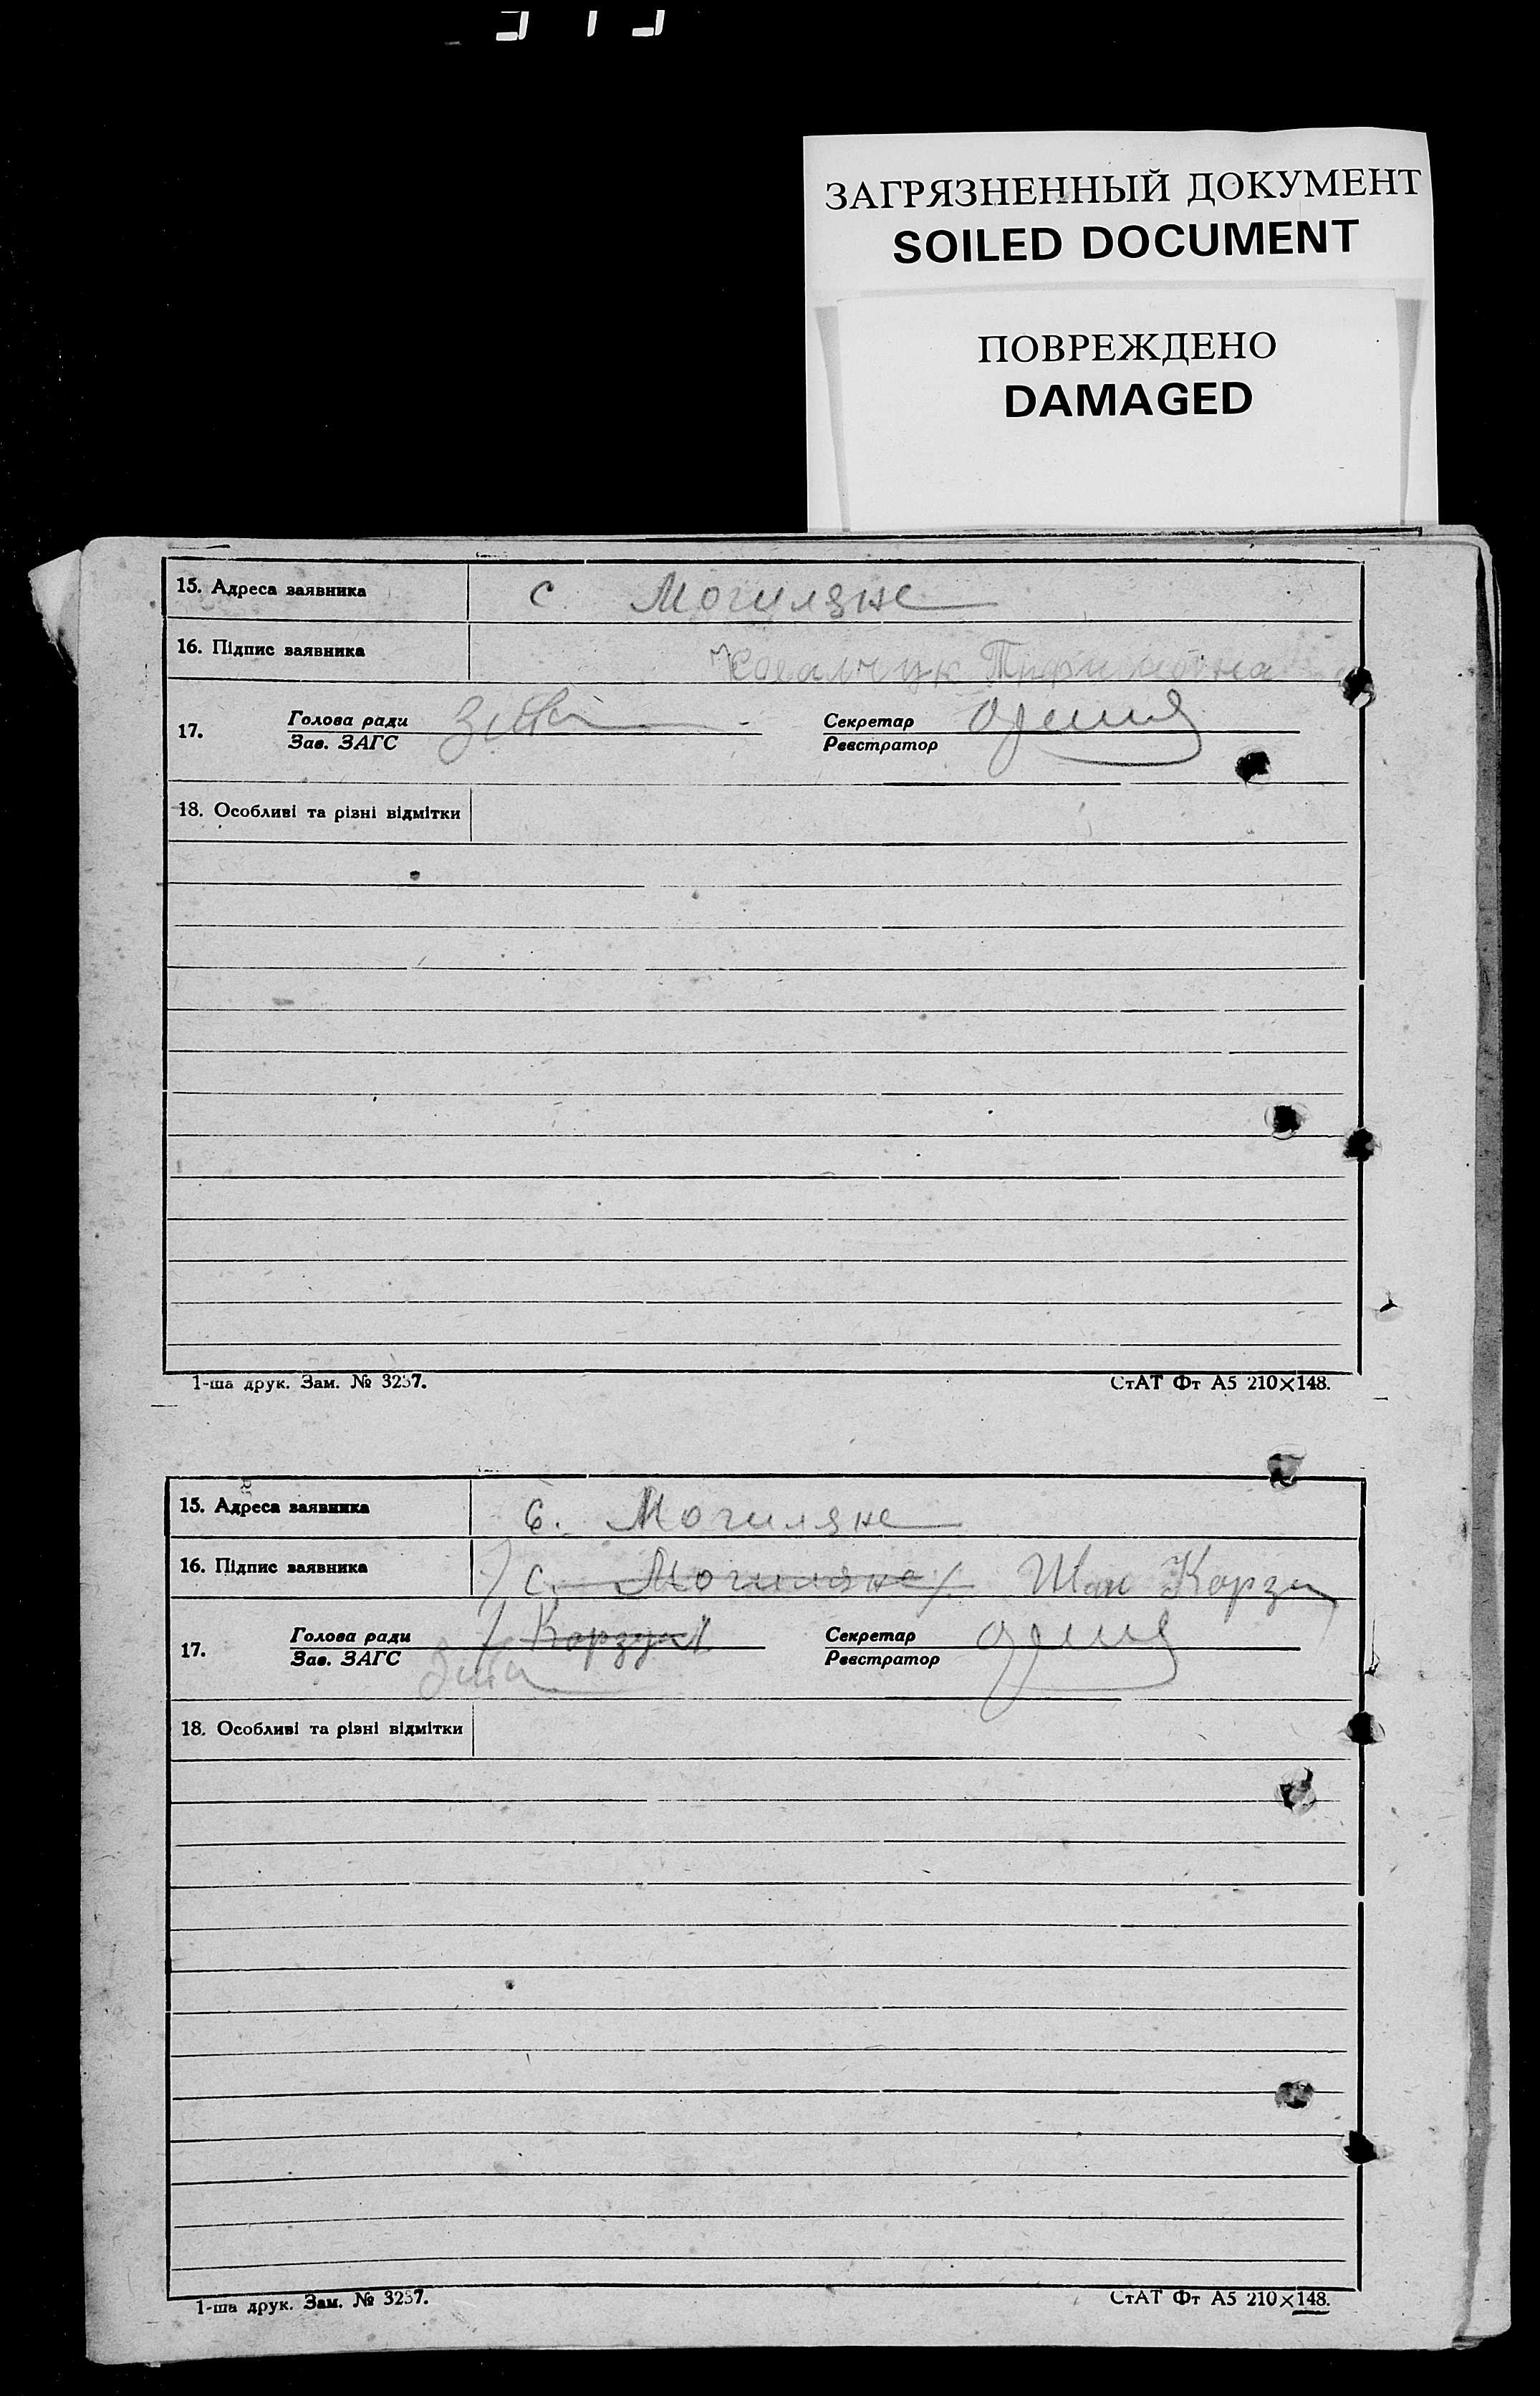 ЗАГРЯЗНЕННЫЙ ДОКУМЕНТ
SOILED DOCUMENT
ПОВРЕЖДЕНО
DAMAGED
15. Адреса заявника с. Могиляне
16. Підпис заявника Ковальчук
17. Голова ради Секретар
Зав. ЗАГС Реєстратор
18. Особливі та різні відмітки
1-ша друк. Зам. № 3257. СтАТ Фт А5 210×148.
15. Адреса заявника с. Могиляне
16. Підпис заявника с. Могиляне
17. Голова ради Корзун Секретар
Зав. ЗАГС Реєстратор
18. Особливі та різні відмітки
1-ша друк. Зам. № 3257. СтАТ Фт А5 210×148.